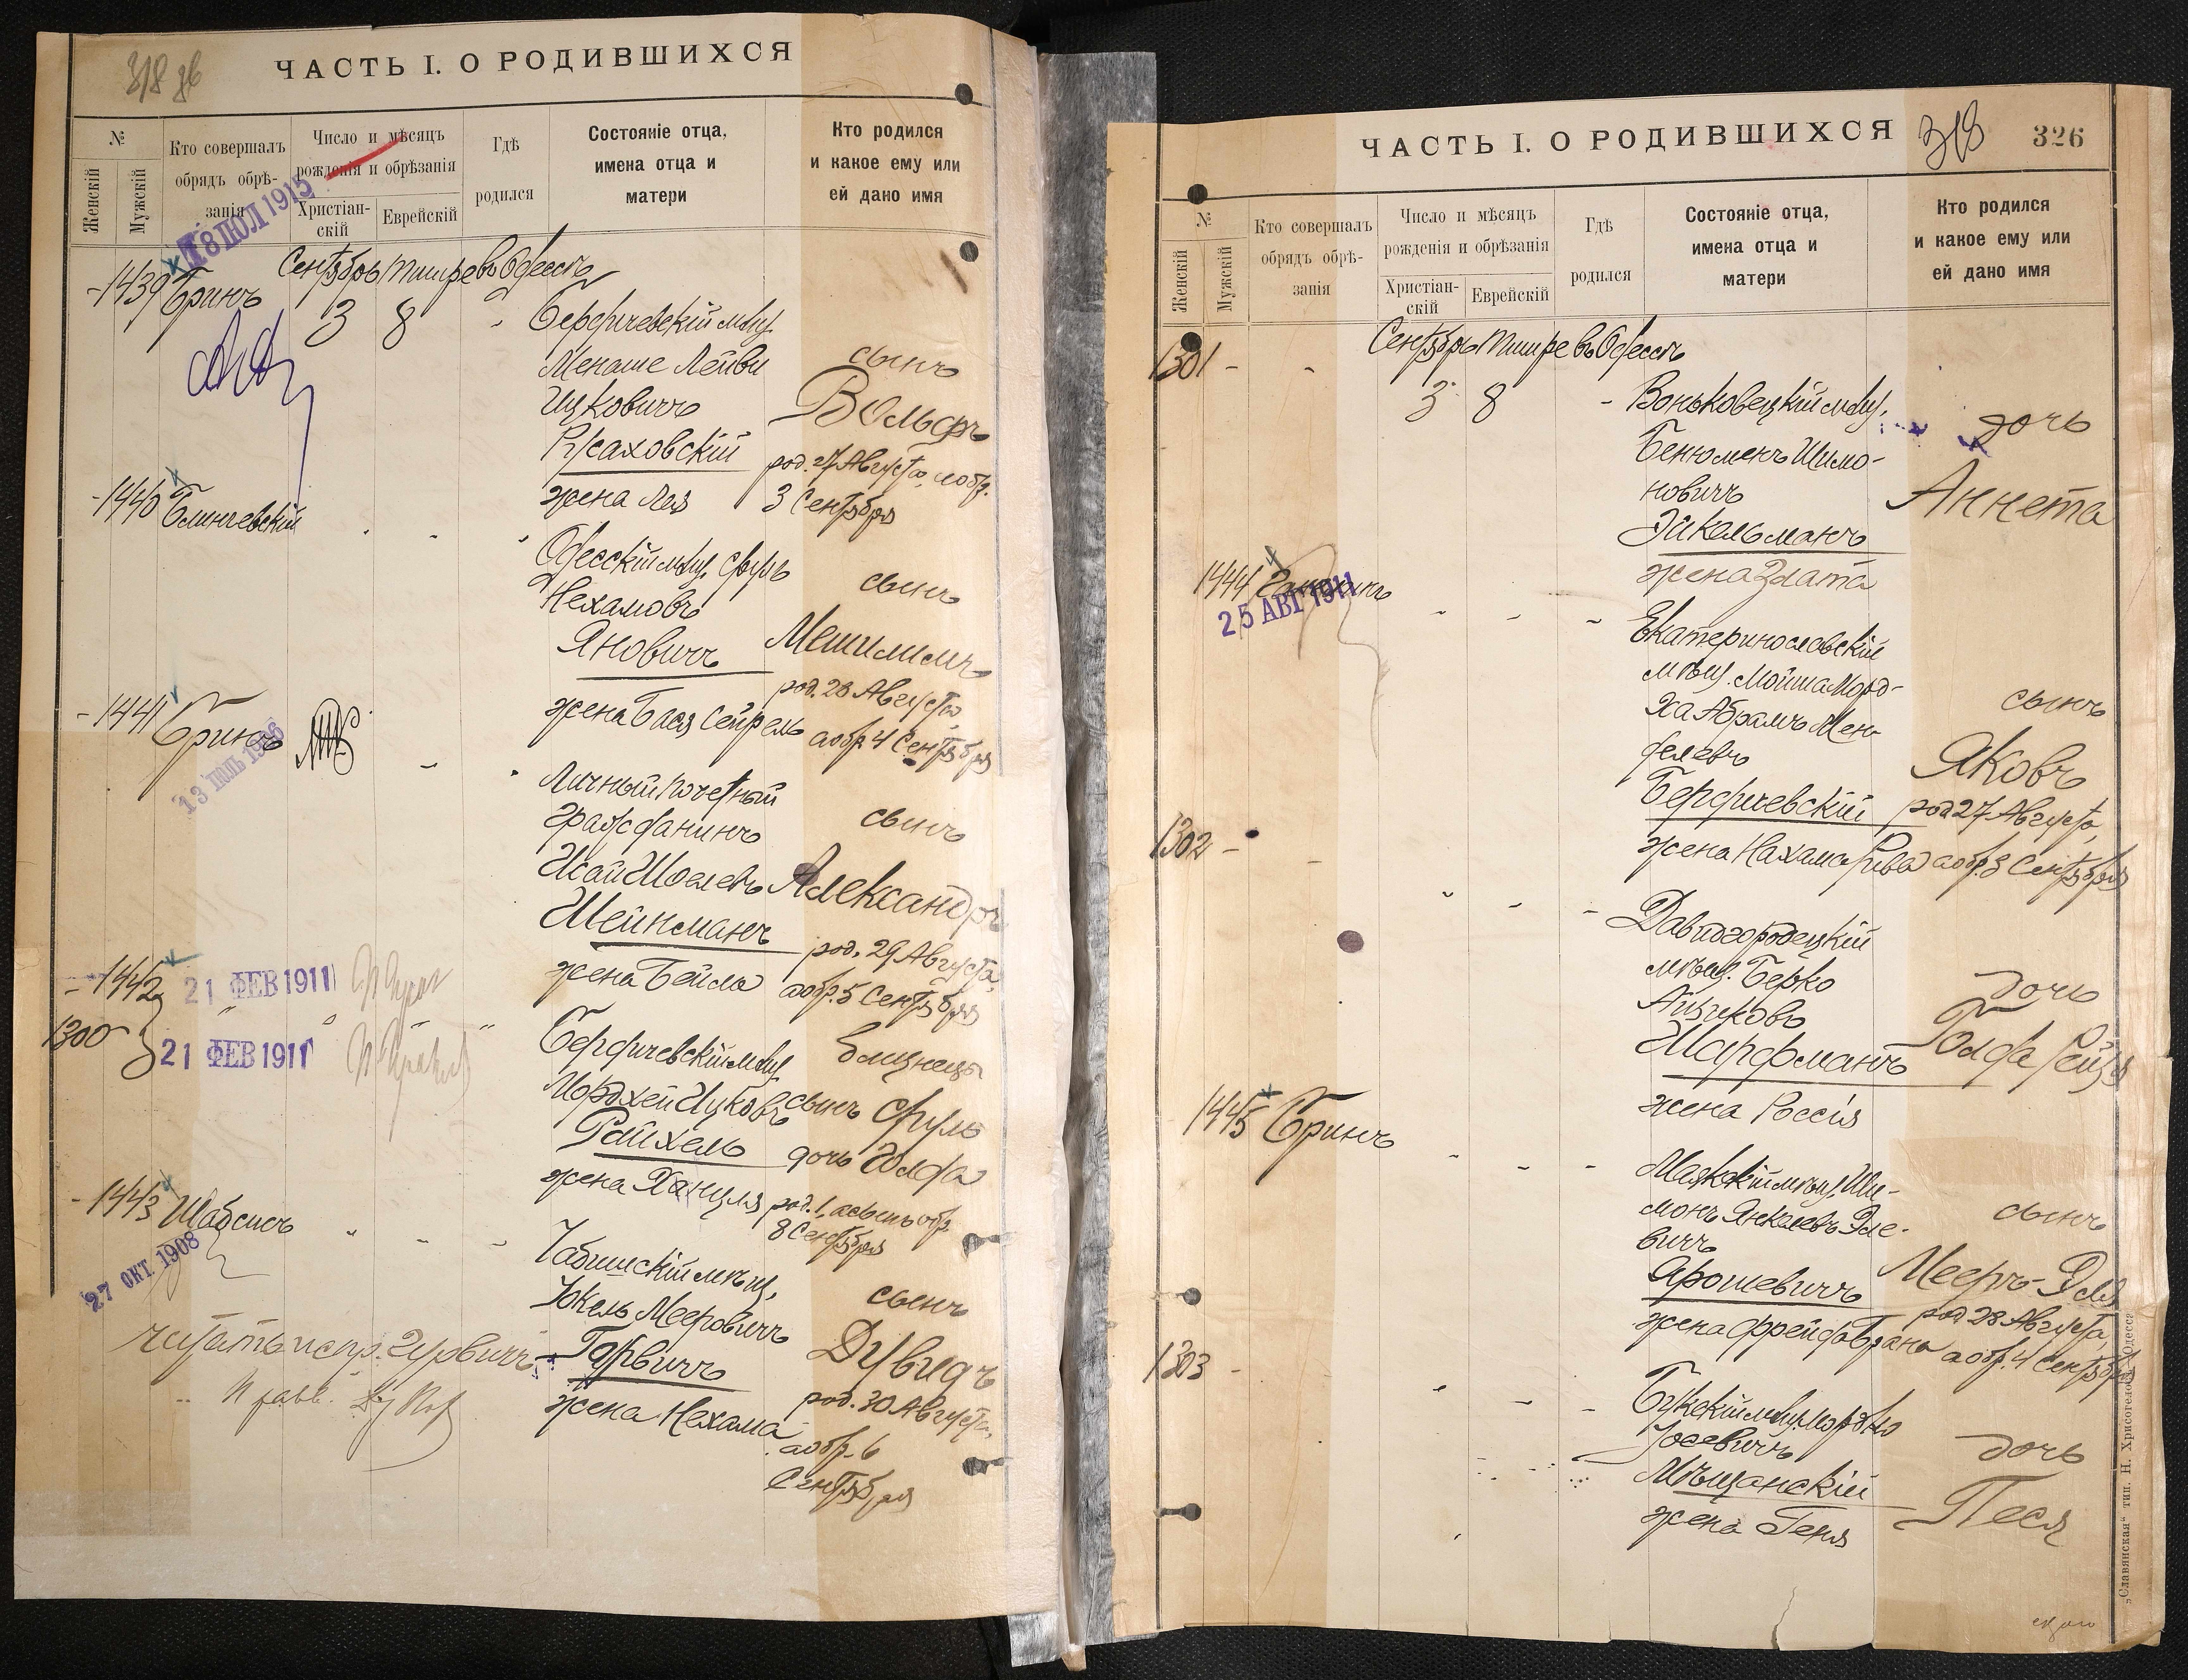 318 об
ЧАСТЬ I. О РОДИВШИХСЯ
№
Женскій
Мужскій
Кто совершалъ
обрядъ обрѣ-
занія
Число и мѣсяцъ
рожденія и обрѣзанія
Христіан-
скій
Еврейскій
Гдѣ
родился
Состояніе отца,
имена отца и
матери
Кто родился
и какое ему или
ей дано имя
18 ІЮЛ 1915
Сентябрь Тишре въ Одессѣ
1439 Гринъ
3 8
Бердичевскій мѣщ.
Менаше Лейви
Ицковичъ
Рżаховскій
жена Лея
сынъ
Вольфъ
род. 27 Августа, а обр.
3 Сентября
1440 Блинчевскій
Одесскій мѣщ. Сруль
Нехамовъ
Яновичъ
жена Бася Сейрель
сынъ
Мешилимъ
род. 28 Августа,
а обр. 4 Сентября
1441 Гринъ
Личный почетный
гражданинъ
Исай Шоелевъ
Шейнманъ
жена Бейла
сынъ
Александръ
род. 29 Августа,
а обр. 5 Сентября
1442
21 ФЕВ 1911
1300
21 ФЕВ 1911
Бердичевскій мѣщ.
Мордхей Ицковъ
Райхель
жена Ханця
близнецы
сынъ Сруль
дочь Голда
род. 1, а сынъ обр.
8 Сентября
1443 Шабсисъ
27 ОКТ 1908
мѣщ.
Іокель Мееровичъ
Горвичъ
жена Нехама
сынъ
Дувидъ
род. 30 Августа,
а обр. 6
Сентября
читать испр. Гурвичъ
318
326
ЧАСТЬ I. О РОДИВШИХСЯ
№
Женскій
Мужскій
Кто совершалъ
обрядъ обрѣ-
занія
Число и мѣсяцъ
рожденія и обрѣзанія
Христіан-
скій
Еврейскій
Гдѣ
родился
Состояніе отца,
имена отца и
матери
Кто родился
и какое ему или
ей дано имя
Сентябрь Тишре въ Одессѣ
1301
3 8
Воньковецкій мѣщ.
Бенюменъ Шимо-
новичъ
Эйкельманъ
жена Злата
дочь
Аннета
1444
25 АВГ 1911
Екатеринославскій
мѣщ. Мойша Морд-
ха Абрамъ Мен-
делевъ
Бердичевскій
жена Нахама Рива
сынъ
Яковъ
род 27 Августа,
а обр. 3 Сентября
1302
Давидгородецкій
мѣщ. Берко
Айзиковъ
Шарфманъ
жена Россія
дочь
Голда Рейзя
1445 Гринъ
Маякскій мѣщ. Ши-
монъ Янкелевъ Эле-
вичъ
Ярошевичъ
жена Фрейда Брана
сынъ
Мееръ-Эля
род 28 Августа,
а обр. 4 Сентября
1303
Букскій мѣщ. Мордко
Іосевичъ
Мѣщанскій
жена Геня
дочь
Песя
„Славянская“ тип. Н. Хрисогелосъ, Одесса